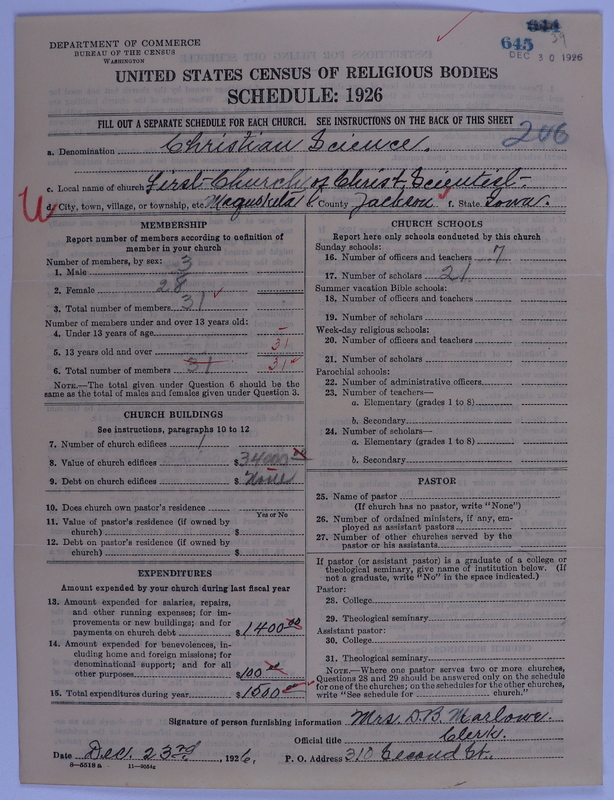 DEPARTMENT OF COMMERCE
BUREAU OF THE CENSUS
WASHINGTON
645
DEC 30 1926
UNITED STATES CENSUS OF RELIGIOUS BODIES
SCHEDULE: 1926
FILL OUT A SEPARATE SCHEDULE FOR EACH CHURCH. SEE INSTRUCTIONS ON THE BACK OF THIS SHEET
206
a. Denomination Christian Science.
c. Local name of church First Church of Christ, Scientist
W
d. City, town, village, or township, etc. Maquoketa e. County Jackson f. State Iowa.
MEMBERSHIP
Report number of members according to definition of
member in your church
Number of members, by sex:
1. Male 3
2. Female 28
3. Total number of members 31
Number of members under and over 13 years old:
4. Under 13 years of age –
5. 13 years old and over 31
6. Total number of members 31 31
NOTE.—The total given under Question 6 should be the
same as the total of males and females given under Question 3.
CHURCH BUILDINGS
See instructions, paragraphs 10 to 12
7. Number of church edifices 1
8. Value of church edifices $34000 00
9. Debt on church edifices $ None
10. Does church own pastor's residence
Yes or No
11. Value of pastor's residence (if owned by
church) $
12. Debt on pastor's residence (if owned by
church) $
EXPENDITURES
Amount expended by your church during last fiscal year
13. Amount expended for salaries, repairs,
and other running expenses; for im-
provements or new buildings; and for
payments on church debt $1400 00
14. Amount expended for benevolences, in-
cluding home and foreign missions; for
denominational support; and for all
other purposes $100 00
15. Total expenditures during year $1500 00
CHURCH SCHOOLS
Report here only schools conducted by this church
Sunday schools:
16. Number of officers and teachers 7
17. Number of scholars 21
Summer vacation Bible schools:
18. Number of officers and teachers
19. Number of scholars
Week-day religious schools:
20. Number of officers and teachers
21. Number of scholars
Parochial schools:
22. Number of administrative officers
23. Number of teachers—
a. Elementary (grades 1 to 8)
b. Secondary
24. Number of scholars—
a. Elementary (grades 1 to 8)
b. Secondary
PASTOR
25. Name of pastor
(If church has no pastor, write "None")
26. Number of ordained ministers, if any, em-
ployed as assistant pastors
27. Number of other churches served by the
pastor or his assistants
If pastor (or assistant pastor) is a graduate of a college or
theological seminary, give name of institution below. (If
not a graduate, write "No" in the space indicated.)
Pastor:
28. College
29. Theological seminary
Assistant pastor:
30. College
31. Theological seminary
NOTE.—Where one pastor serves two or more churches,
Questions 28 and 29 should be answered only on the schedule
for one of the churches; on the schedules for the other churches,
write "See schedule for church."
Signature of person furnishing information Mrs. D. B. Marlowe.
Official title Clerk.
Date Dec. 23rd, 1926. P. O. Address 310 Second St.
8—5518 a 11—9054g